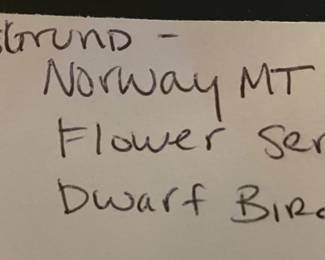 sGrund -
Norway MT
Flower Ser
Dwarf Birc